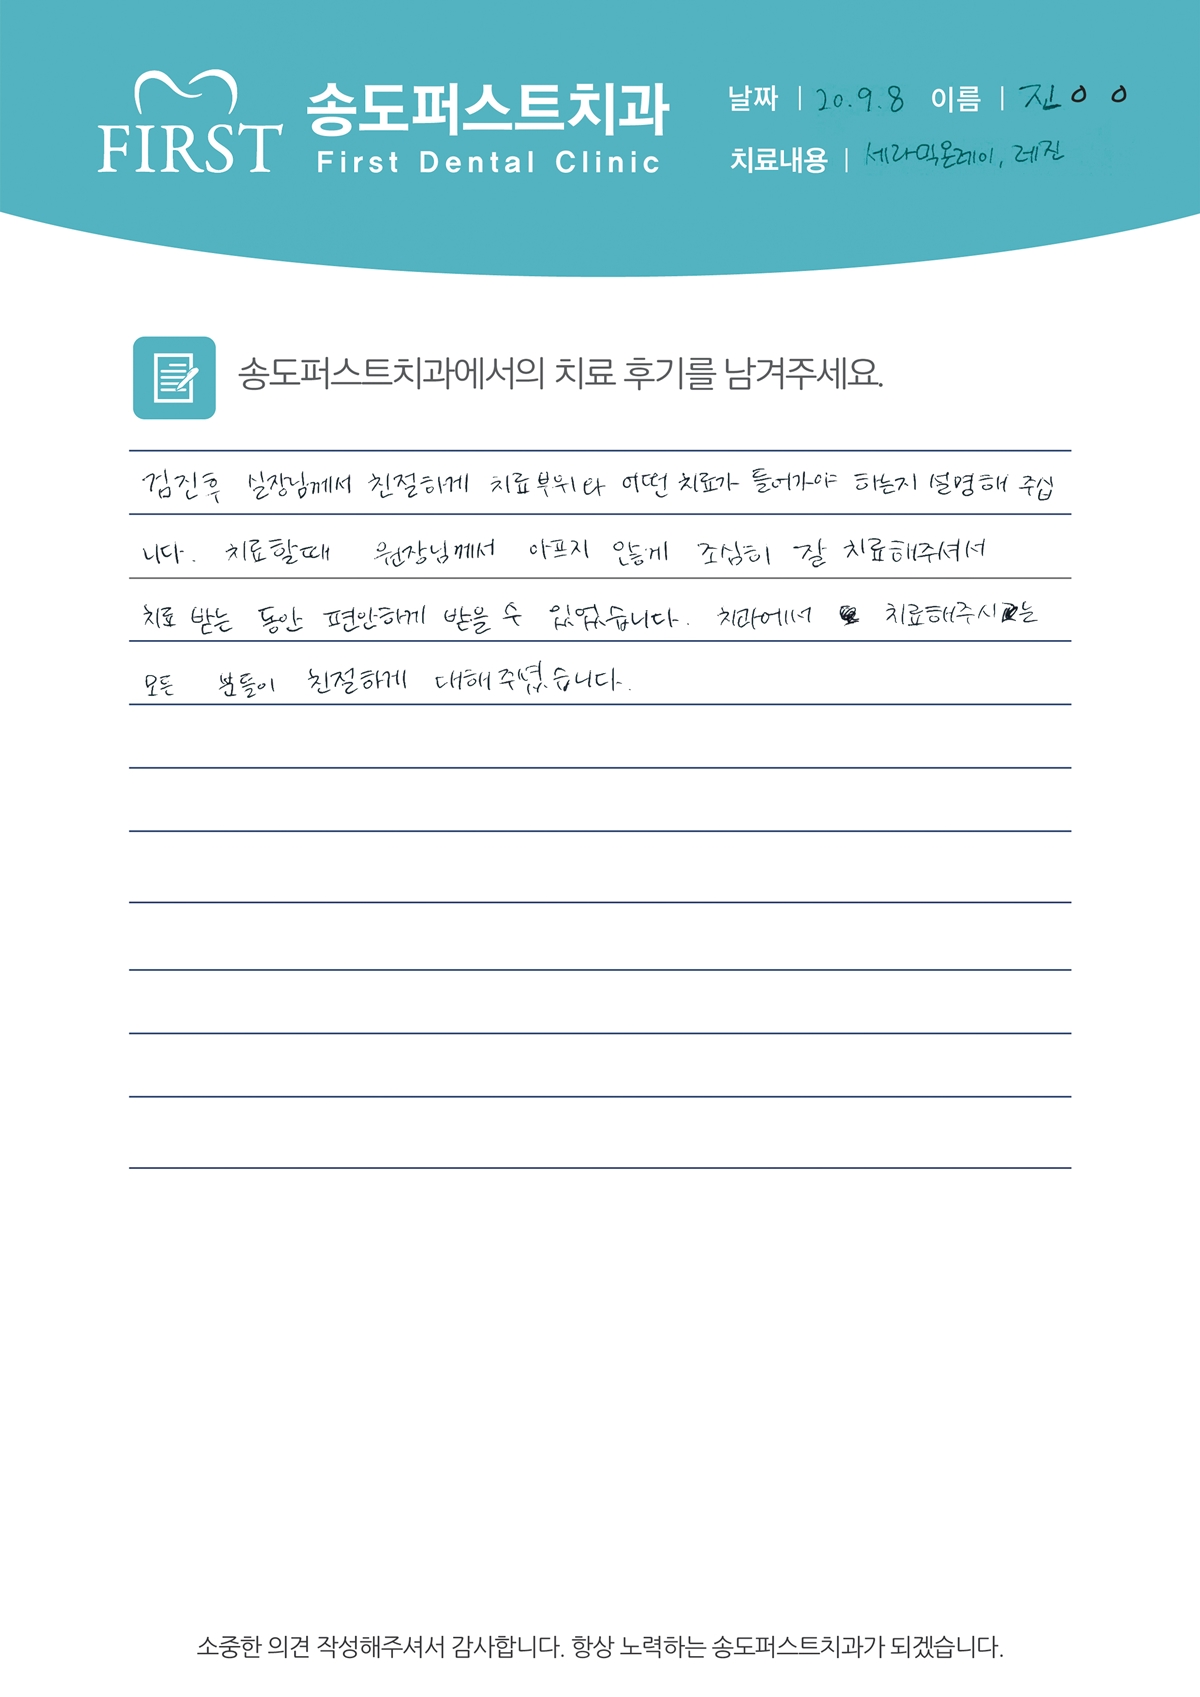 FIRST
송도퍼스트치과
First Dental Clinic
날짜 | 20.9.8 이름 | 진 o o
치료내용 | 세라믹온레이, 레진
송도퍼스트치과에서의 치료 후기를 남겨주세요.
김진후 실장님께서 친절하게 치료부위와 어떤 치료가 들어가야 하는지 설명해 주십
니다. 치료할때 원장님께서 아프지 않게 조심히 잘 치료해주셔서
치료 받는 동안 편안하게 받을 수 있었습니다. 치과에서 치료해주시는
모든 분들이 친절하게 대해주셨습니다.
소중한 의견 작성해주셔서 감사합니다. 항상 노력하는 송도퍼스트치과가 되겠습니다.